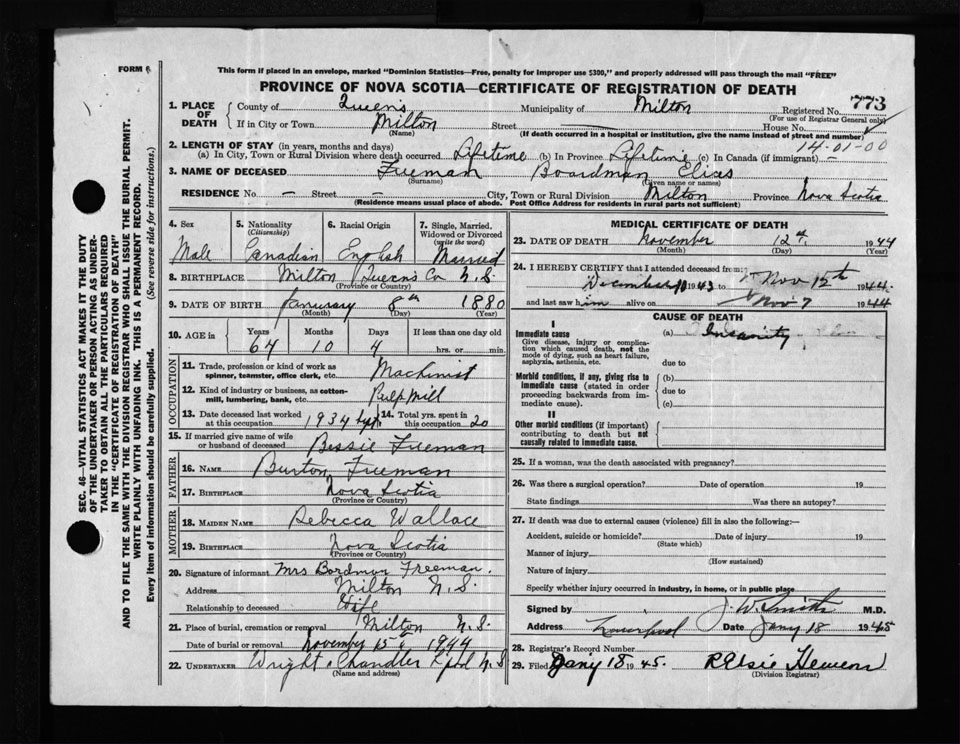 FORM 6
This form if placed in an envelope, marked "Dominion Statistics—Free, penalty for improper use $300," and properly addressed will pass through the mail "FREE"
PROVINCE OF NOVA SCOTIA—CERTIFICATE OF REGISTRATION OF DEATH
773
1. PLACE OF DEATH
County of Queens Municipality of Milton Registered No.
(For use of Registrar General only)
If in City or Town Milton Street House No.
(Name) (If death occurred in a hospital or institution, give the name instead of street and number)
14-01-00
2. LENGTH OF STAY (in years, months and days)
(a) In City, Town or Rural Division where death occurred Lifetime (b) In Province Lifetime (c) In Canada (if immigrant) —
3. NAME OF DECEASED Freeman Boardman
(Surname) (Given name or names)
RESIDENCE No. — Street — City, Town or Rural Division Milton Province Nova Scotia
(Residence means usual place of abode. Post Office Address for residents in rural parts not sufficient)
4. Sex 5. Nationality (Citizenship) 6. Racial Origin 7. Single, Married, Widowed or Divorced (write the word)
Male Canadian English Married
8. BIRTHPLACE Milton Queens Co N.S.
(Province or Country)
9. DATE OF BIRTH January 8th 1880
(Month) (Day) (Year)
10. AGE in Years Months Days If less than one day old
64 10 4 hrs. or min.
OCCUPATION
11. Trade, profession or kind of work as spinner, teamster, office clerk, etc. Machinist
12. Kind of industry or business, as cotton-mill, lumbering, bank, etc. Pulp Mill
13. Date deceased last worked at this occupation 1934 14. Total yrs. spent in this occupation 20
15. If married give name of wife or husband of deceased Bessie Freeman
FATHER
16. NAME Burton Freeman
17. BIRTHPLACE Nova Scotia
(Province or Country)
MOTHER
18. MAIDEN NAME Rebecca Wallace
19. BIRTHPLACE Nova Scotia
(Province or Country)
20. Signature of informant Mrs Bordman Freeman.
Address Milton N.S.
Relationship to deceased Wife
21. Place of burial, cremation or removal Milton N.S.
Date of burial or removal November 15th 1944
22. UNDERTAKER Wright & Chandler L'pool N.S
(Name and address)
MEDICAL CERTIFICATE OF DEATH
23. DATE OF DEATH November 12th 1944
(Month) (Day) (Year)
24. I HEREBY CERTIFY that I attended deceased from:
December 1943 to Nov 12th 1944
and last saw him alive on Nov 7 1944
CAUSE OF DEATH
I
Immediate cause
Give disease, injury or complication which caused death, not the mode of dying, such as heart failure, asphyxia, asthenia, etc.
(a) Insanity
due to
Morbid conditions, if any, giving rise to immediate cause (stated in order proceeding backwards from immediate cause).
(b)
due to
(c)
II
Other morbid conditions (if important) contributing to death but not causally related to immediate cause.
25. If a woman, was the death associated with pregnancy?
26. Was there a surgical operation? Date of operation 19
State findings Was there an autopsy?
27. If death was due to external causes (violence) fill in also the following:—
Accident, suicide or homicide? Date of injury 19
(State which)
Manner of injury
(How sustained)
Nature of injury
Specify whether injury occurred in industry, in home, or in public place
Signed by J. W. Smith M.D.
Address Liverpool Date Jany 18 1945
28. Registrar's Record Number
29. Filed Jany 18 1945. Elsie
(Division Registrar)
SEC. 46—VITAL STATISTICS ACT MAKES IT THE DUTY
OF THE UNDERTAKER OR PERSON ACTING AS UNDERTAKER TO OBTAIN ALL THE PARTICULARS REQUIRED
IN THE "CERTIFICATE OF REGISTRATION OF DEATH"
AND TO FILE THE SAME WITH THE DIVISION REGISTRAR WHO SHALL ISSUE THE BURIAL PERMIT.
WRITE PLAINLY WITH UNFADING INK. THIS IS A PERMANENT RECORD.
Every item of information should be carefully supplied. (See reverse side for instructions.)